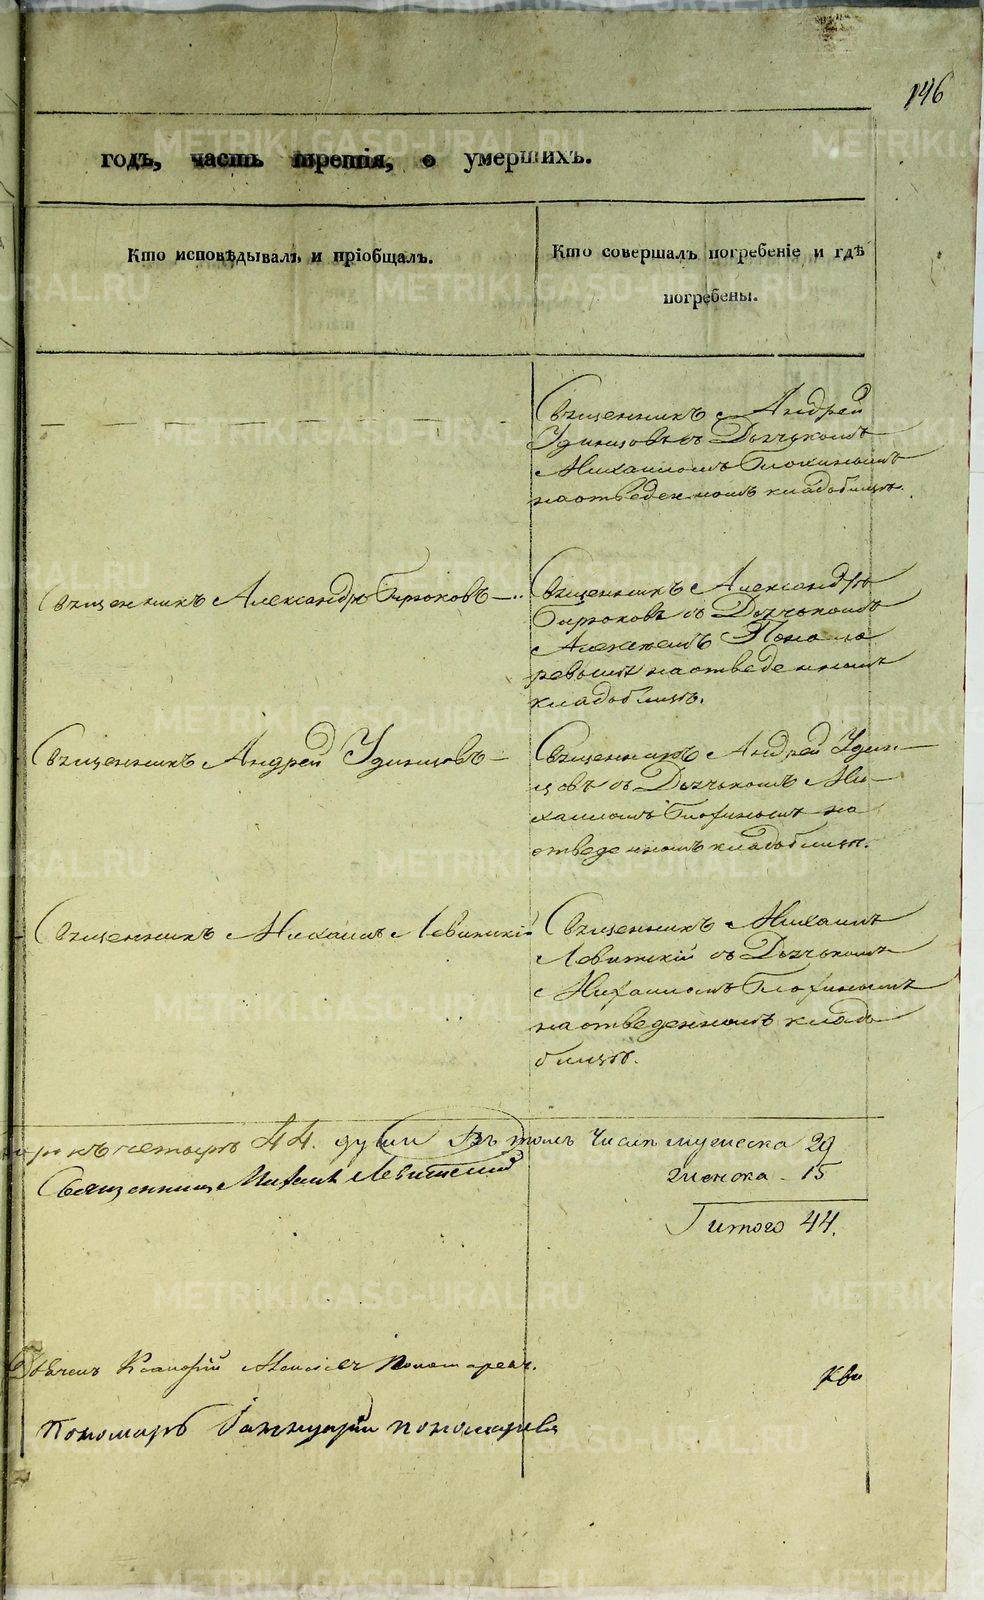 146
годъ, часть третія, о умершихъ.
Кто исповѣдывалъ и пріобщалъ.
Кто совершалъ погребеніе и гдѣ
погребены.
Священникъ Андрей
Удинцовъ съ Дьячкомъ
Михаиломъ
на отведенномъ кладбищѣ.
Священникъ Александръ Бирюковъ
Священникъ Александръ
Бирюковъ съ Дьячкомъ
Алексѣемъ Понома
ревымъ на отведенномъ
кладбищѣ.
Священникъ Андрей Удинцовъ
Священникъ Андрей Удин
цовъ съ Дьячкомъ Ми
хаиломъ на
отведенномъ кладбищѣ.
Священникъ Михаилъ Левитскій
Священникъ Михаилъ
Левитскій съ Дьячкомъ
Михаиломъ
на отведенномъ кладъ
бищѣ.
четыре 44. души въ томъ числѣ мужеска 29
Священникъ Михаилъ Левитскій
женска 15
Итого 44.
Пономарь
METRIKI.GASO-URAL.RU